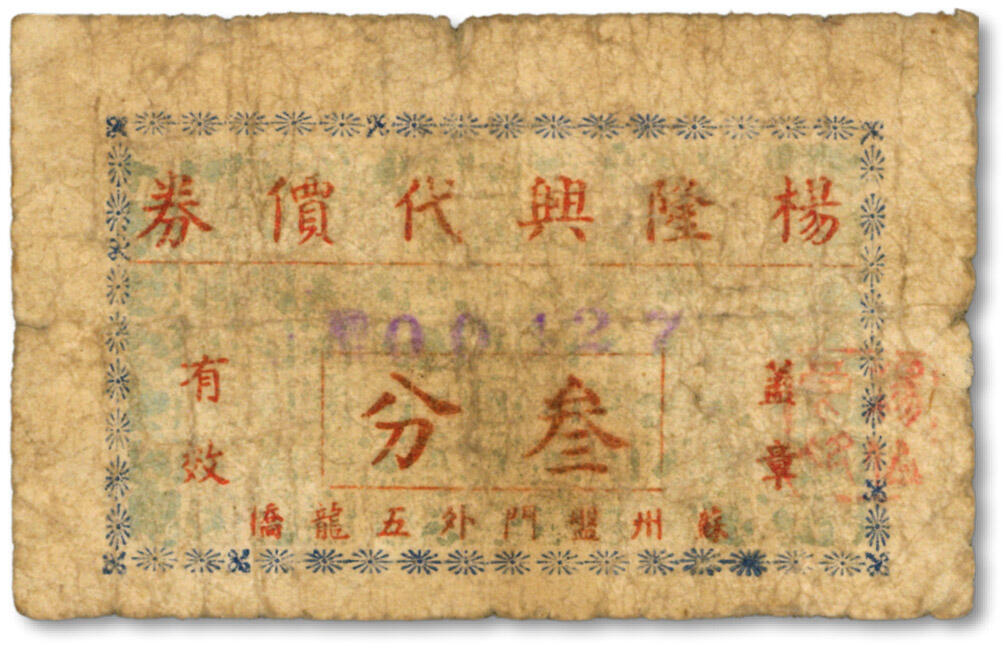 楊隆興代價券
00427
蓋章
叁分
有效
蘇州盤門外五龍橋